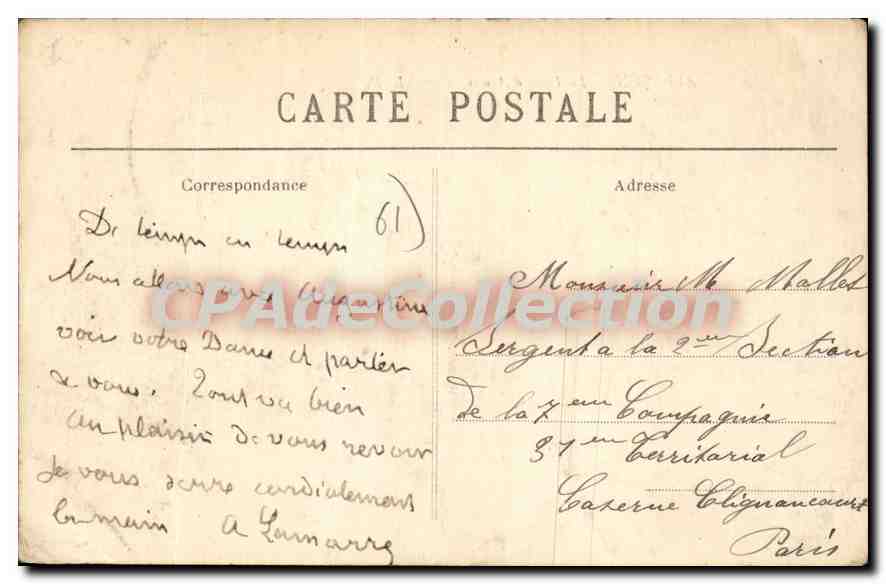 CARTE POSTALE
Correspondance
Adresse
61)
De temps en temps
Nous allons avec Augustine
voir votre Dame et parler
de vous. Tout va bien
au plaisir de vous revoir
Je vous serre cordialement
la main A Lamarre
Monsieur M Mallet
Sergent a la 2eme Section
de la 7eme Compagnie
31eme Territorial
Caserne Clignancourt
Paris
CPAdeCollection